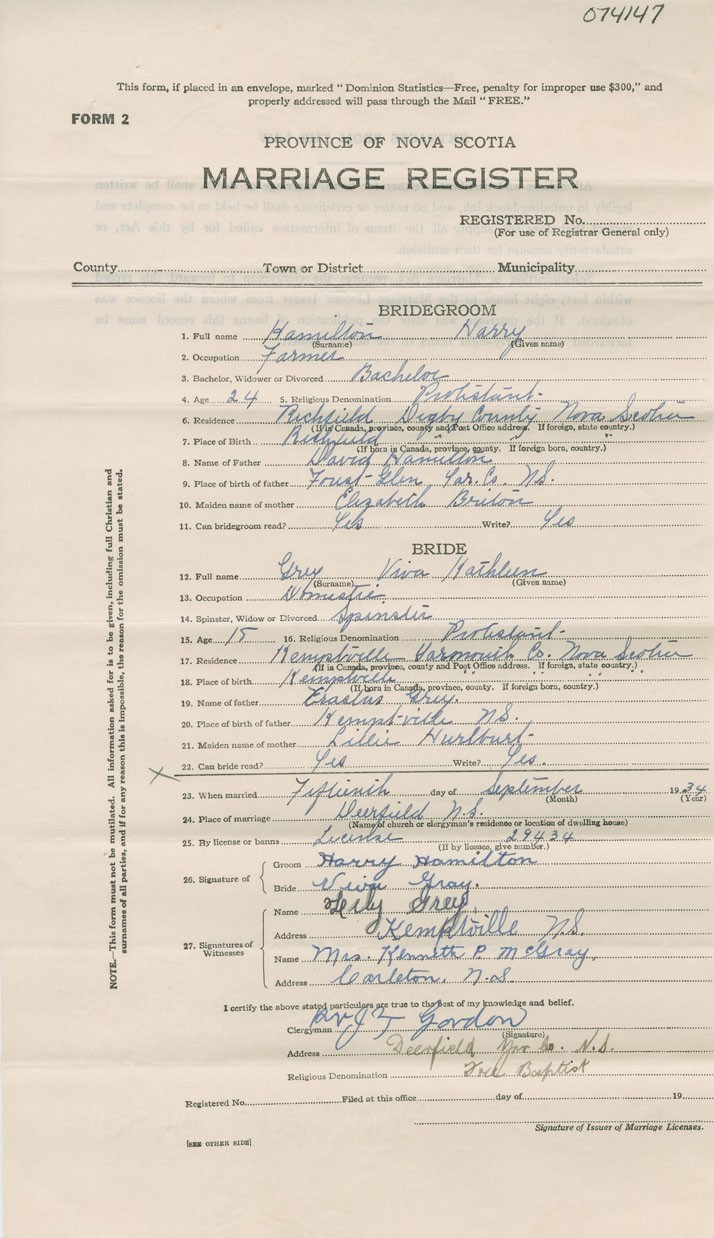 074147
This form, if placed in an envelope, marked "Dominion Statistics—Free, penalty for improper use $300," and
properly addressed will pass through the Mail "FREE."
FORM 2
PROVINCE OF NOVA SCOTIA
MARRIAGE REGISTER
REGISTERED No.
(For use of Registrar General only)
County Town or District Municipality
BRIDEGROOM
1. Full name Hamilton Harry
(Surname) (Given name)
2. Occupation Farmer
3. Bachelor, Widower or Divorced Bachelor
4. Age 24 5. Religious Denomination Protestant
6. Residence Richfield Digby County Nova Scotia
(If in Canada, province, county and Post Office address. If foreign, state country.)
7. Place of Birth Richfield " " "
(If born in Canada, province, county. If foreign born, country.)
8. Name of Father David Hamilton
9. Place of birth of father Forest-Glen Yar. Co. N.S.
10. Maiden name of mother Elizabeth
11. Can bridegroom read? Yes Write? Yes
BRIDE
12. Full name Grey Viva Kathleen
(Surname) (Given name)
13. Occupation Domestic
14. Spinster, Widow or Divorced Spinster
15. Age 15 16. Religious Denomination Protestant
17. Residence Kemptville Yarmouth Co. Nova Scotia
(If in Canada, province, county and Post Office address. If foreign, state country.)
18. Place of birth Kemptville " " " "
(If born in Canada, province, county. If foreign born, country.)
19. Name of father Erastus Grey.
20. Place of birth of father Kemptville N.S.
21. Maiden name of mother Lillie Hurlburt
22. Can bride read? Yes Write? Yes.
23. When married Fiftienth day of September 1934
(Month) (Year)
24. Place of marriage Deerfield N.S.
(Name of church or clergyman's residence or location of dwelling house)
25. By license or banns License 29434
(If by licence, give number.)
26. Signature of
Groom Harry Hamilton
Bride Viva Gray.
27. Signatures of Witnesses
Name Grey
Address Kemptville N.S.
Name Mrs. Kenneth P. McGray,
Address Carleton, N.S.
I certify the above stated particulars are true to the best of my knowledge and belief.
Clergyman Gordon
(Signature)
Address Deerfield Yar Co. N.S.
Religious Denomination Free Baptist
Registered No. Filed at this office day of 19
Signature of Issuer of Marriage Licenses.
[SEE OTHER SIDE]
NOTE.—This form must not be mutilated. All information asked for is to be given, including full Christian and
surnames of all parties, and if for any reason this is impossible, the reason for the omission must be stated.